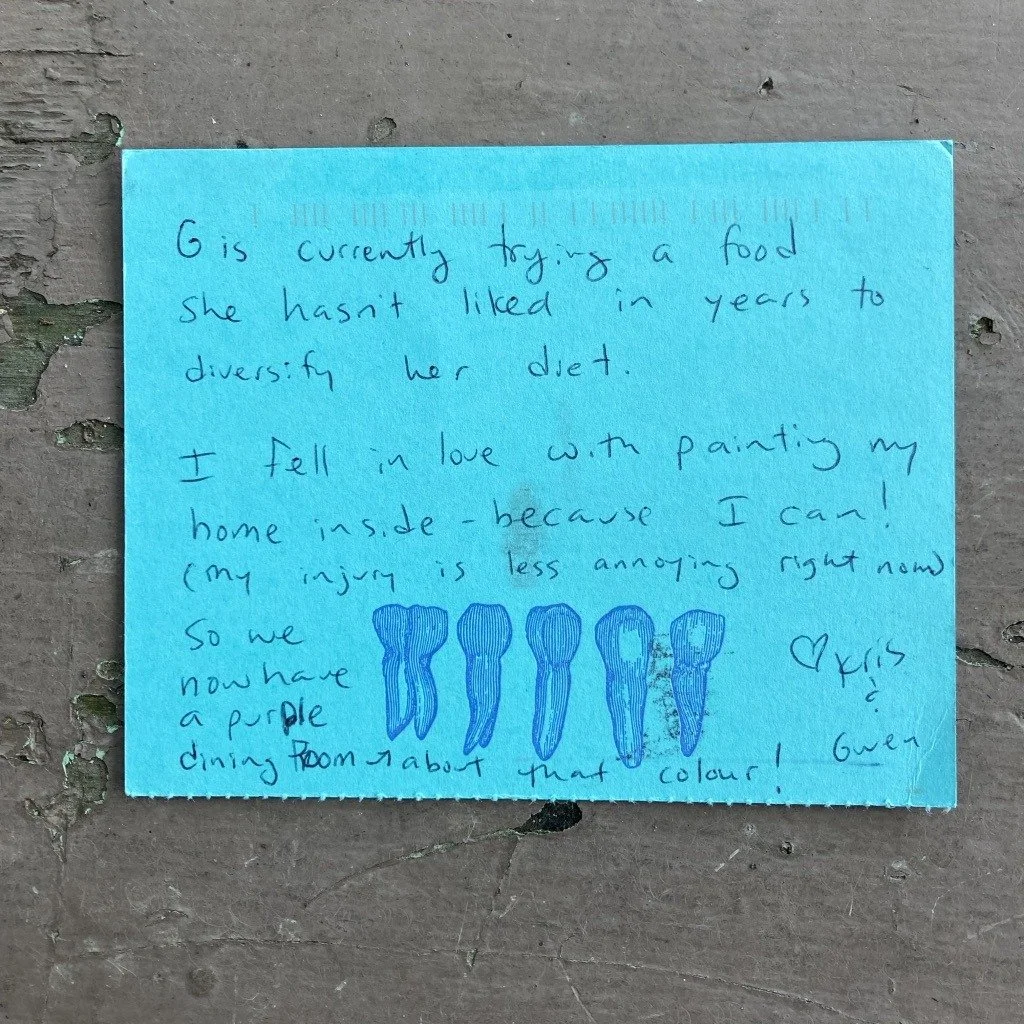 G is currently trying a food
she hasn't liked in years to
diversify her diet.
I fell in love with painting my
home inside - because I can!
(my injury is less annoying right now)
So we
now have
a purple
dining room → about that colour!
♡ Kris
&
Gwen